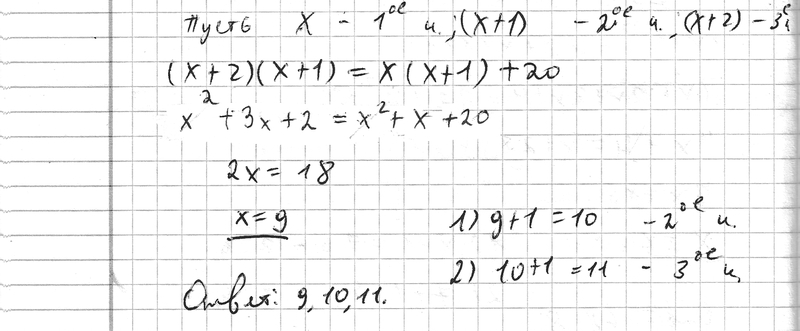 Пусть x - 1ое ч.; (x+1) - 2ое ч.; (x+2) - 3е ч
(x+2)(x+1) = x(x+1)+20
x² + 3x + 2 = x² + x + 20
2x = 18
x = 9
1) 9+1 = 10 - 2ое ч.
2) 10+1 = 11 - 3ое ч.
Ответ: 9, 10, 11.